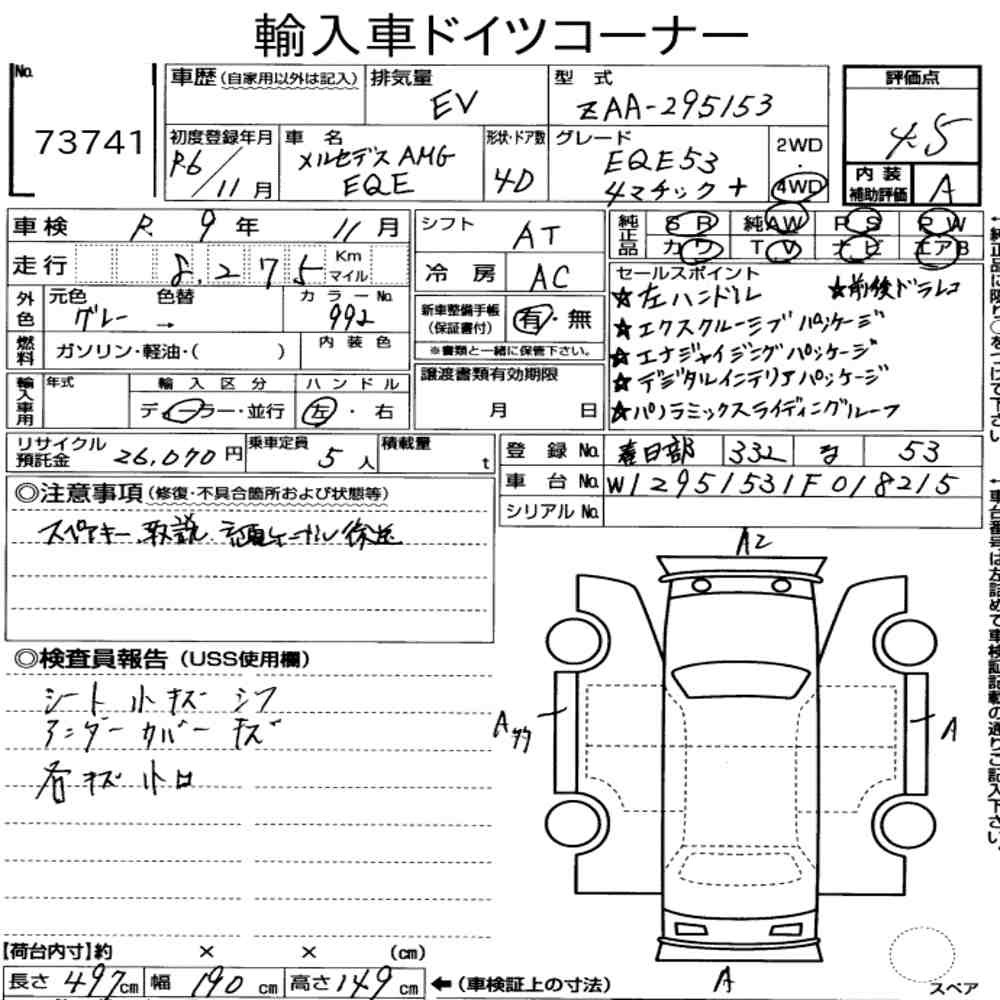 輸入車ドイツコーナー
No. 73741
車歴(自家用以外は記入) 排気量 EV 型式 ZAA-295153
評価点 4.5
初度登録年月 R6/11月 車名 メルセデスAMG EQE 形状・ドア数 4D グレード EQE53 4マチック+ 2WD・4WD
内装補助評価 A
車検 R 9年 11月
シフト AT
純正品 SR 純AW PS PW カワ TV ナビ エアB
走行 8,275 Km マイル
冷房 AC
外色 元色 グレー → 色替 カラーNo. 992
燃料 ガソリン・軽油・( ) 内装色
新車整備手帳(保証書付) 有・無
※書類と一緒に保管下さい。
セールスポイント
★左ハンドル ★前後ドラレコ
★エクスクルーシブパッケージ
★エナジャイジングパッケージ
★デジタルインテリアパッケージ
★パノラミックスライディングルーフ
輸入車用 年式 輸入区分 ディーラー・並行 ハンドル 左・右
譲渡書類有効期限 月 日
リサイクル預託金 26,070円 乗車定員 5人 積載量 t
登録No. 春日部 332 な 53
車台No. W12951531F018215
シリアルNo.
◎注意事項(修復・不具合箇所および状態等)
スペアキー、取説
◎検査員報告(USS使用欄)
シート小キズ シワ
アンダーカバーキズ
各キズ小凹
A2
A
A
A
【荷台内寸】約 × × (cm)
長さ 497cm 幅 190cm 高さ 149cm ←(車検証上の寸法)
スペア
↑純正品に限り○をつけて下さい。
↑車台番号は左詰めで車検証記載の通りご記入下さい。